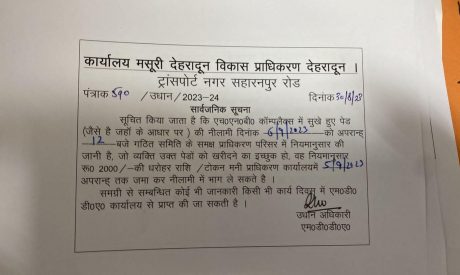 कार्यालय मसूरी देहरादून विकास प्राधिकरण देहरादून ।
ट्रांसपोर्ट नगर सहारनपुर रोड
पंत्राक 590 /उधान/2023-24 दिनांक 30/8/23
सार्वजनिक सूचना
सूचित किया जाता है कि एच०एन०बी० कॉम्पलैक्स में सुखे हुए पेड
(जैसे है जहाँ के आधार पर) की नीलामी दिनांक 6/9/2023 को अपरान्ह
12 बजे गठित समिति के समक्ष प्राधिकरण परिसर में नियमानुसार की
जानी है, जो व्यक्ति उक्त पेडों को खरीदने का इच्छुक हो, वह नियमानुसार
रू0 2000/-की धरोहर राशि /टोकन मनी प्राधिकरण कार्यालयमें 5/9/2023
अपरान्ह तक जमा कर नीलामी में भाग ले सकते है ।
समग्री से सम्बन्धित कोई भी जानकारी किसी भी कार्य दिवस में एम०डी०
डी०ए० कार्यालय से प्राप्त की जा सकती है ।
उधान अधिकारी
एम०डी०डी०ए०